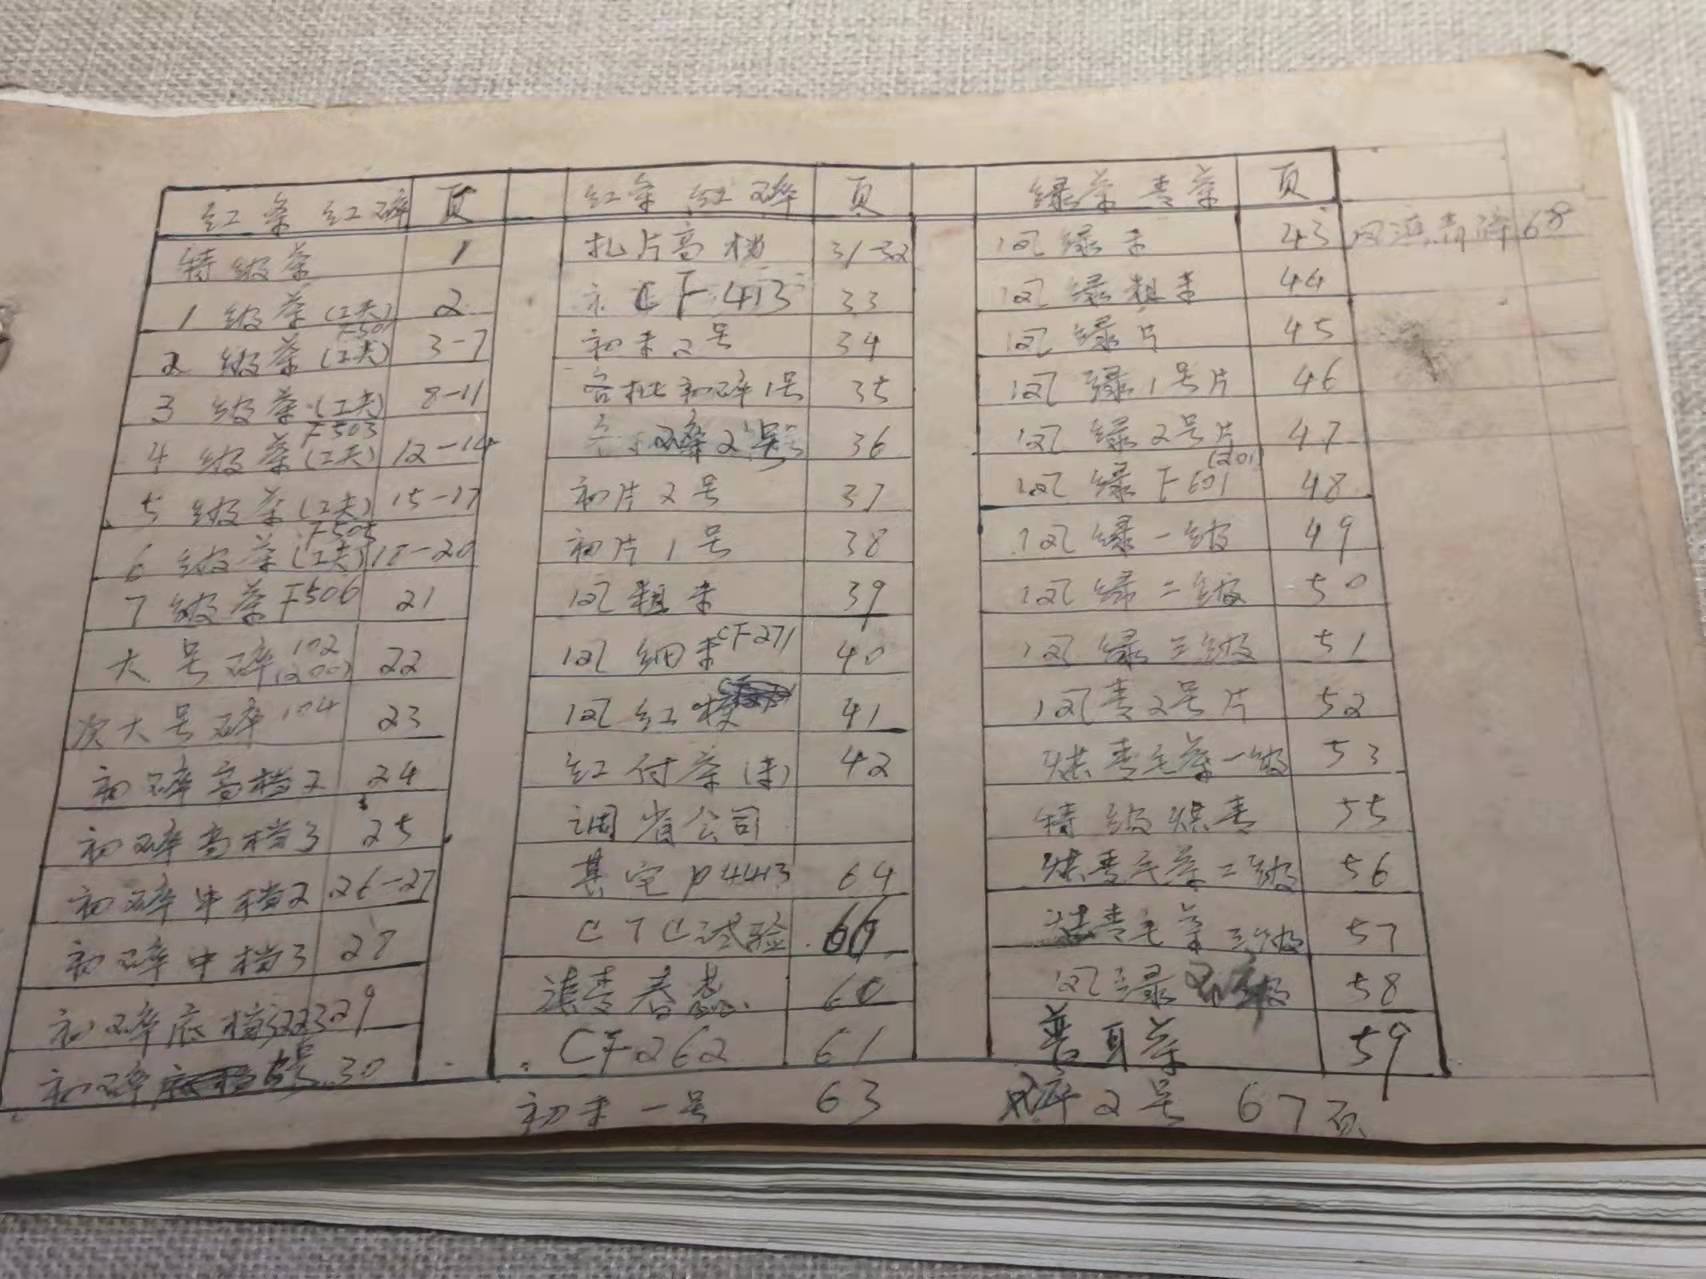 红条 红碎 页 红条 红碎 页 绿茶 青茶 页
特级茶 1 扎片高档 31-32 风绿末 43 青碎68
1级茶(工夫) 2 CF413 33 风绿粗末 44
F501
2级茶(工夫) 3-7 初末2号 34 风绿片 45
3级茶(工夫) 8-11 各批初碎1号 35 风绿1号片 46
F503
4级茶(工夫) 12-14 碎2号 36 风绿2号片 47
(201)
5级茶(工夫) 15-17 初片2号 37 风绿F601 48
F505
6级茶(工夫) 18-20 初片1号 38 风绿一级 49
7级茶F506 21 风粗末 39 风绿二级 50
大号碎102 (200) 22 风细末CF271 40 风绿三级 51
次大号碎104 23 风红梗 41 风青2号片 52
初碎高档2 24 红付茶(末) 42 烘青毛茶一级 53
初碎高档3 25 调省公司 特级烘青 55
初碎中档2 26-27 其它P443 64 烘青毛茶二级 56
初碎中档3 28 CTC试验 66 烘青毛茶三级 57
初碎底档 29 滇青春蕊 60 风绿 级 58
初碎 号 30 CF262 61 普耳茶 59
初末一号 63 碎2号 67页